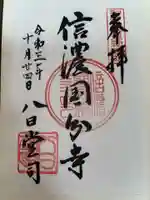 奉拝
信濃国分寺
令和三年
十月廿四日
八日堂司